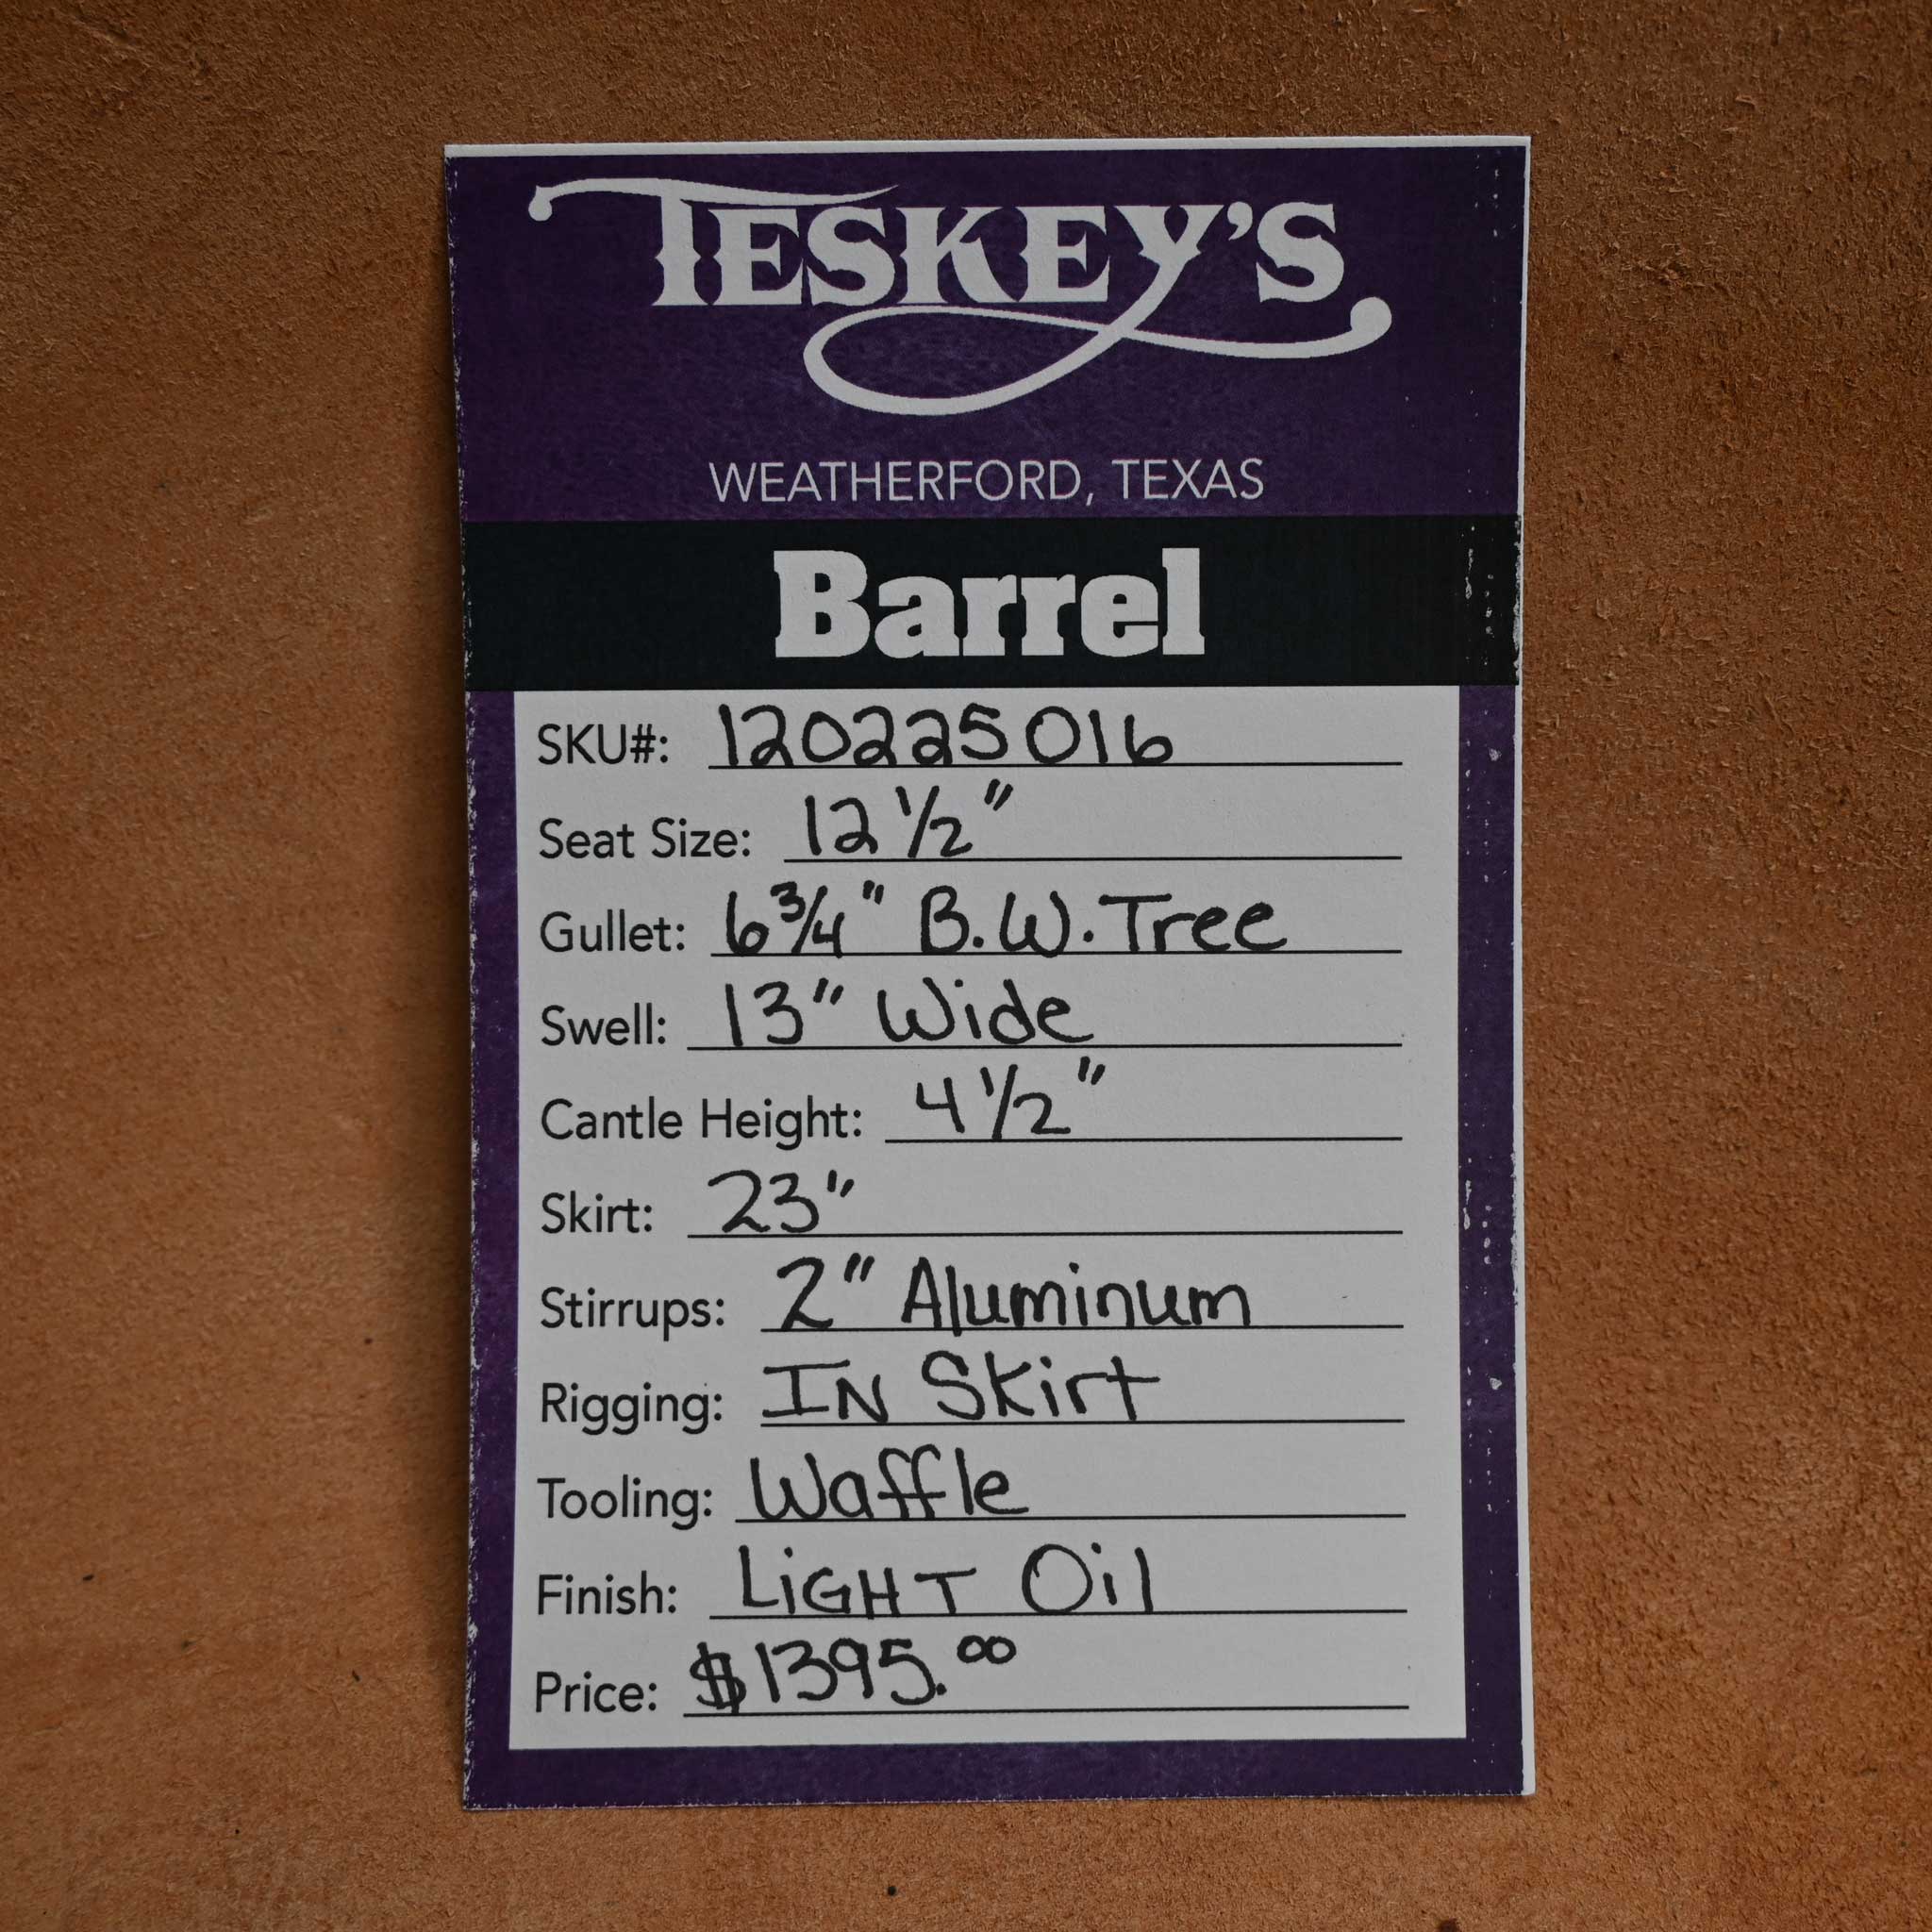 TESKEY'S
WEATHERFORD, TEXAS
Barrel
SKU#: 120225016
Seat Size: 12 1/2"
Gullet: 6 3/4" B.W. Tree
Swell: 13" Wide
Cantle Height: 4 1/2"
Skirt: 23"
Stirrups: 2" Aluminum
Rigging: IN Skirt
Tooling: Waffle
Finish: LiGHT Oil
Price: $1395.00